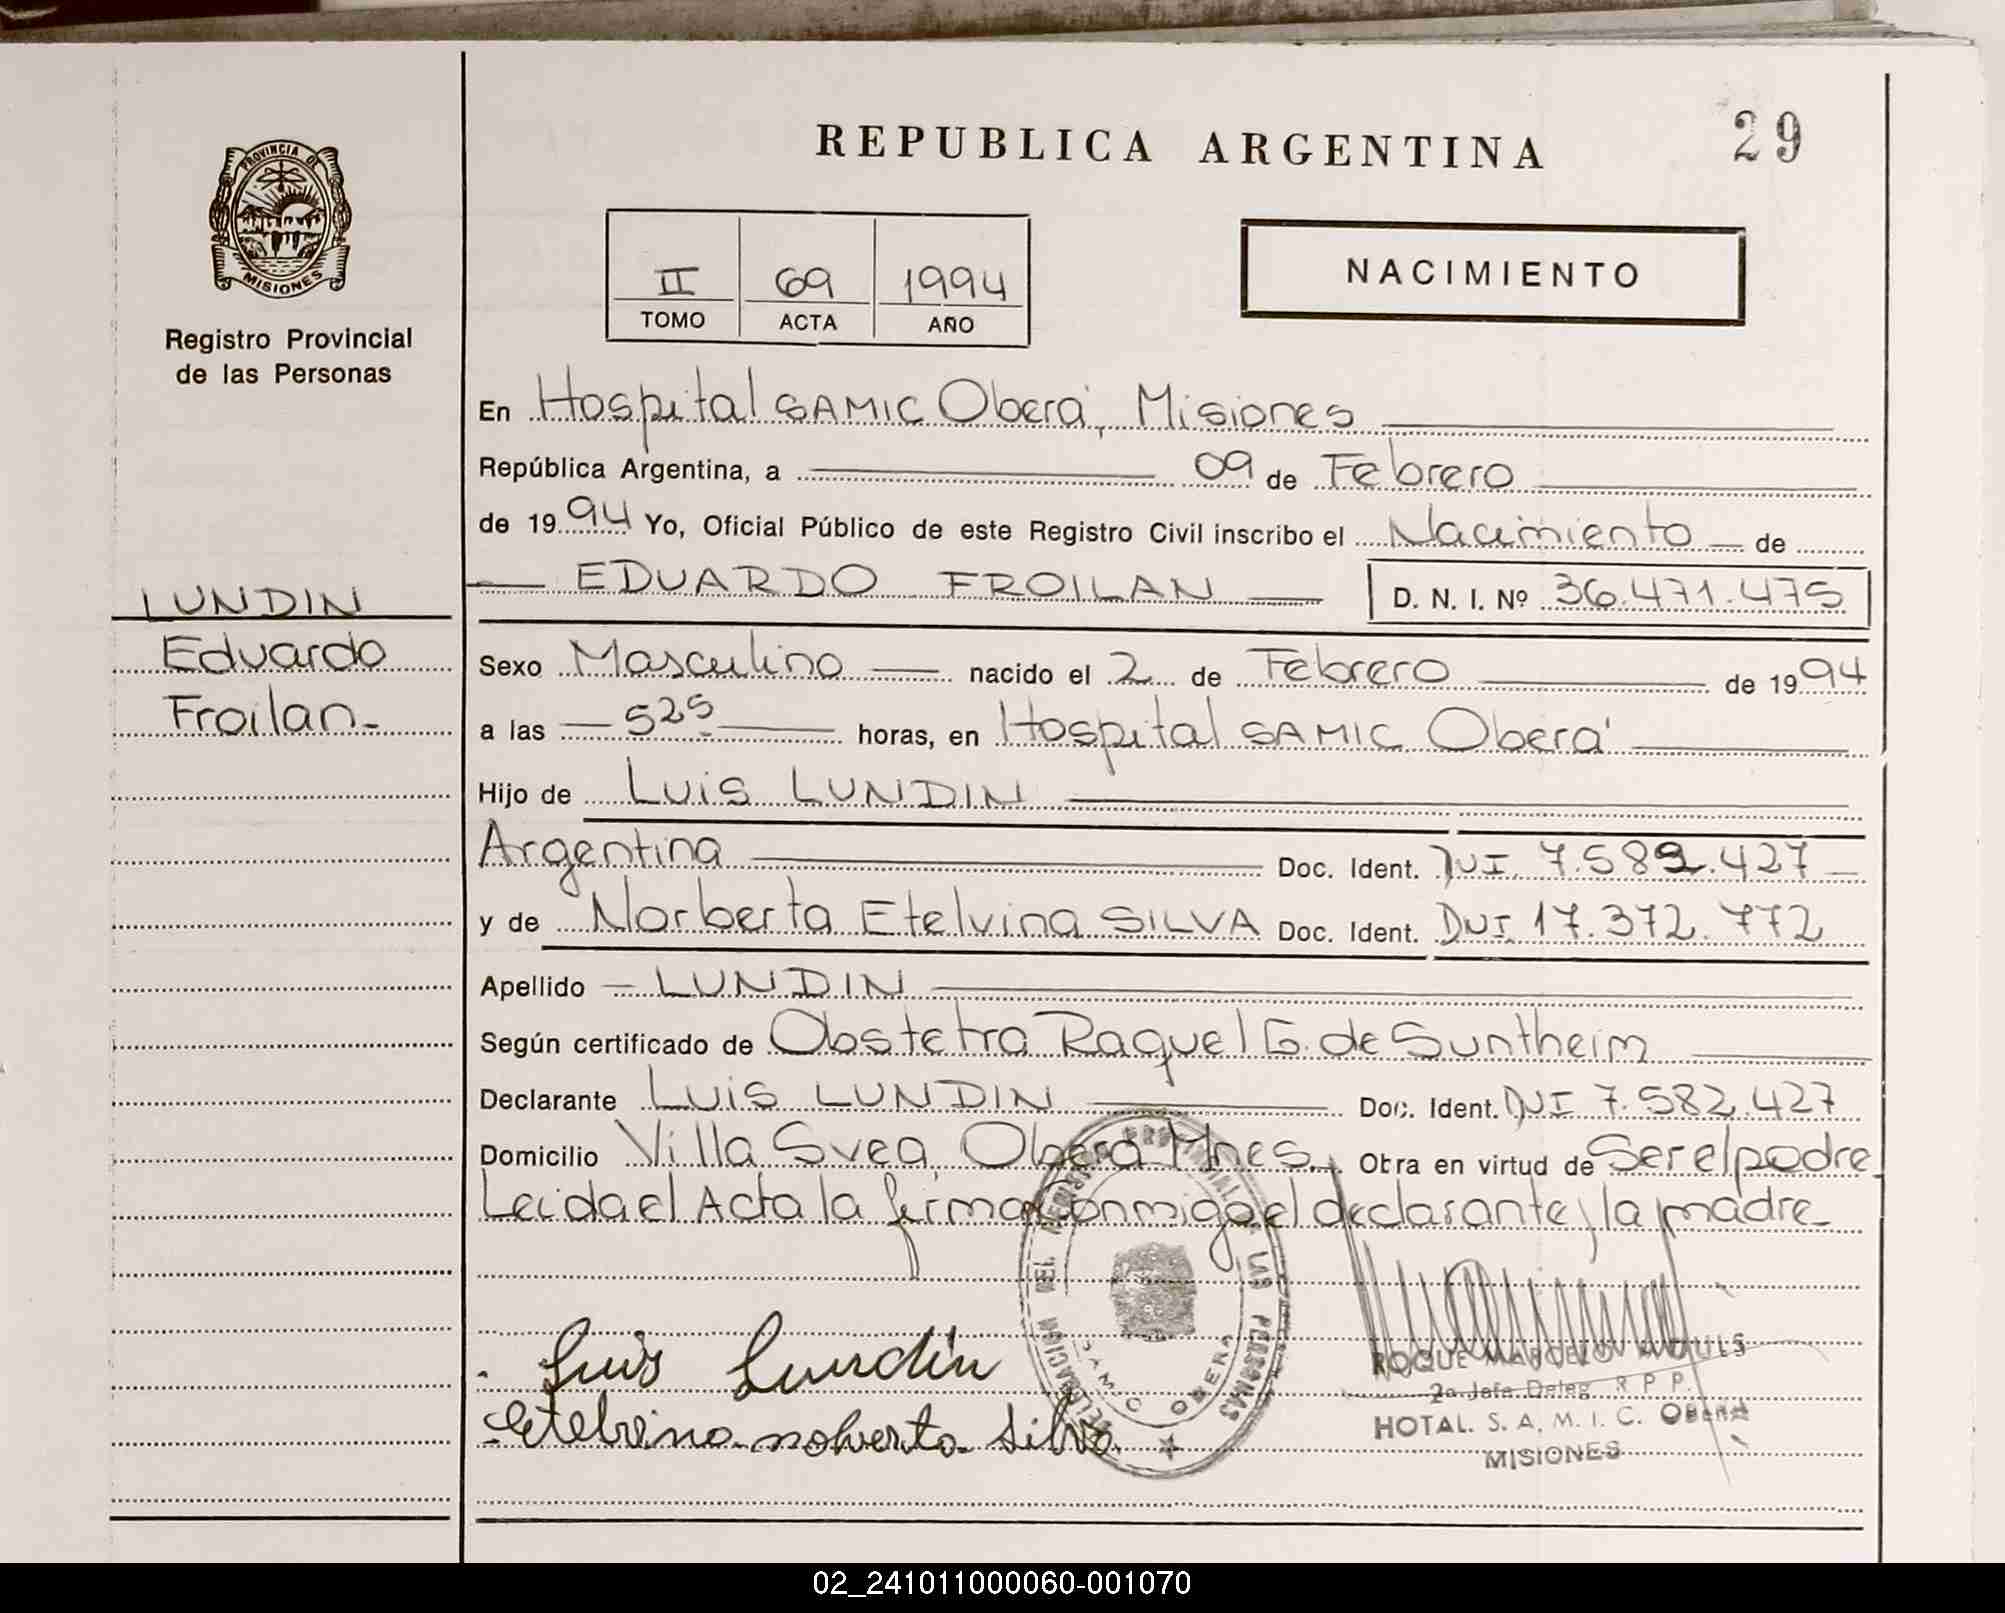 REPUBLICA ARGENTINA
29
PROVINCIA DE
MISIONES
Registro Provincial
de las Personas
II 69 1994
TOMO ACTA AÑO
NACIMIENTO
LUNDIN
Eduardo
Froilan-
En Hospital SAMIC Oberá, Misiones
República Argentina, a 09 de Febrero
de 1994 Yo, Oficial Público de este Registro Civil inscribo el Nacimiento de
EDUARDO FROILAN D. N. I. Nº 36.471.475
Sexo Masculino nacido el 2 de Febrero de 1994
a las 525 horas, en Hospital SAMIC Oberá
Hijo de Luis LUNDIN
Argentina Doc. Ident. DNI 7.582.427
y de Norberta Etelvina SILVA Doc. Ident. DNI 17.372.772
Apellido LUNDIN
Según certificado de Obstetra Raquel G. de Suntheim
Declarante Luis LUNDIN Doc. Ident. DNI 7.582.427
Domicilio Villa Svea, Oberá Mnes. Obra en virtud de Ser el padre
Leida el Acta la firma Conmigo el declarante y la madre
DELEGACION DEL REGISTRO PROVINCIAL DE LAS PERSONAS
SAMIC OBERA
Luis Lundin
Etelvina nolverta Silva
ROQUE MARCELO
2o Jefe Deleg. R P P.
HOTAL. S. A. M. I. C. OBERA
MISIONES
02_241011000060-001070